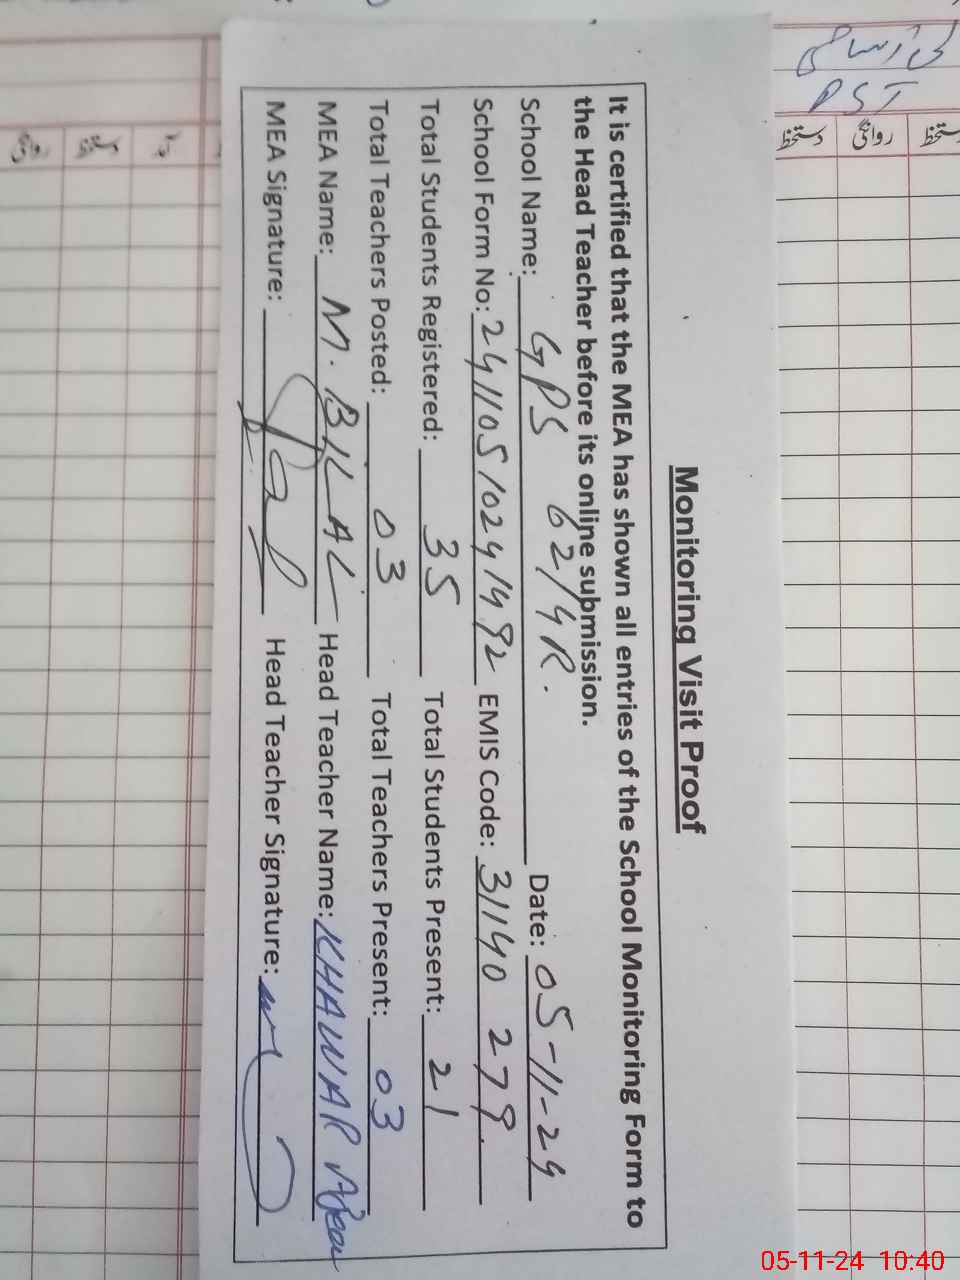 Monitoring Visit Proof
It is certified that the MEA has shown all entries of the School Monitoring Form to
the Head Teacher before its online submission.
School Name: GPS 62/4R. Date: 05-11-24
School Form No: 241105/0241492 EMIS Code: 31140 279.
Total Students Registered: 35 Total Students Present: 21
Total Teachers Posted: 03 Total Teachers Present: 03
MEA Name: M. BILAL Head Teacher Name: KHAWAR
MEA Signature: Head Teacher Signature:
PST
دستخط روانگی دستخط
05-11-24 10:40